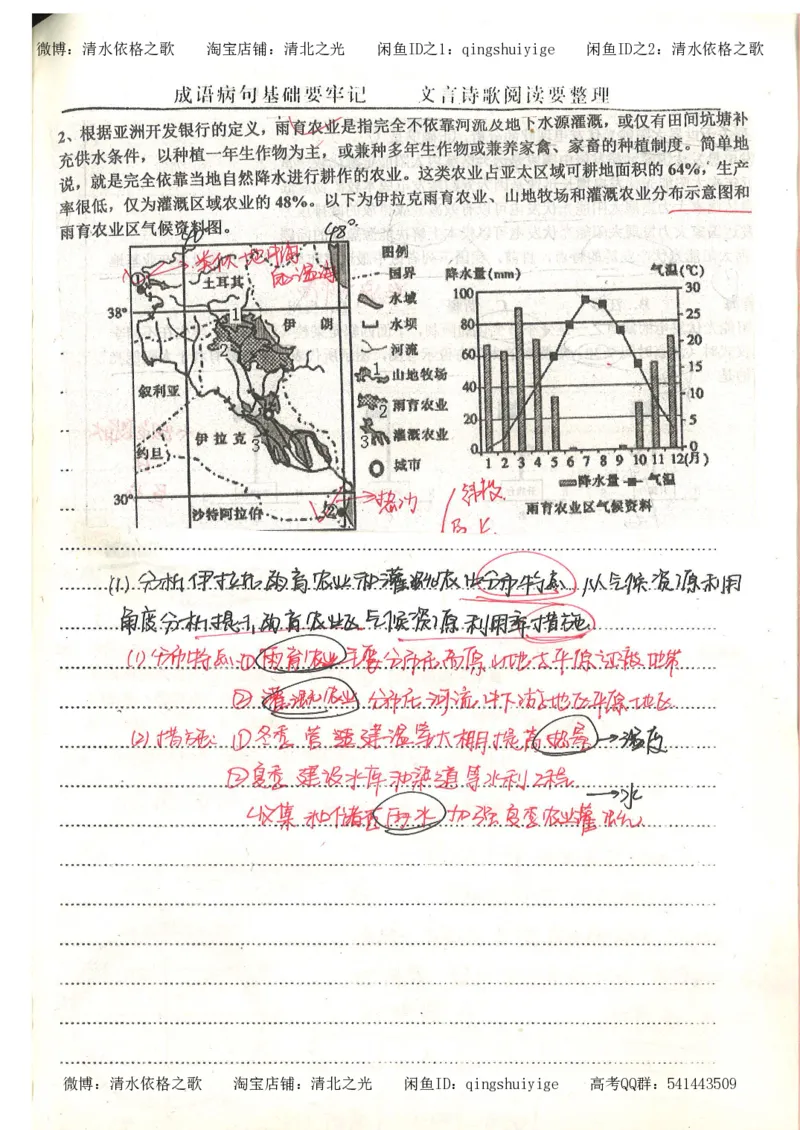 微博：清水依格之歌 淘宝店铺：清北之光 闲鱼ID之1：qingshuiyige 闲鱼ID之2：清水依格之歌
成语病句基础要牢记 文言诗歌阅读要整理
2、根据亚洲开发银行的定义，雨育农业是指完全不依靠河流及地下水源灌溉，或仅有田间坑塘补
充供水条件，以种植一年生作物为主，或兼种多年生作物或兼养家禽、家畜的种植制度。简单地
说，就是完全依靠当地自然降水进行耕作的农业。这类农业占亚太区域可耕地面积的 64%，生产
率很低，仅为灌溉区域农业的 48%。以下为伊拉克雨育农业、山地牧场和灌溉农业分布示意图和
雨育农业区气候资料图。
48°
类似 地中海
土耳其
38°
1
伊 朗
2
叙利亚
伊 拉 克
3
约旦
30°
沙特阿拉伯
图例
国界
水域
水坝
河流
1 山地牧场
2 雨育农业
3 灌溉农业
城市
降水量(mm) 气温(℃)
100 80 60 40 20 0
30 25 20 15 10 5 0
1 2 3 4 5 6 7 8 9 10 11 12(月)
降水量 气温
雨育农业区气候资料
(1) 分析伊拉克雨育农业和灌溉农业分布特点，从气候资源利用
角度分析提升雨育农业区气候资源利用率措施
(1) 分布特点：① 雨育农业主要分布在高原山地与平原过渡地带
② 灌溉农业 分布在河流中下游地区平原地区
(2) 措施：① 冬季 管理建温室大棚提高热量→温度
② 夏季 建设水库和渠道等水利工程
→水
收集和储蓄雨水 加强夏季农业灌溉
微博：清水依格之歌 淘宝店铺：清北之光 闲鱼ID：qingshuiyige 高考QQ群：541443509